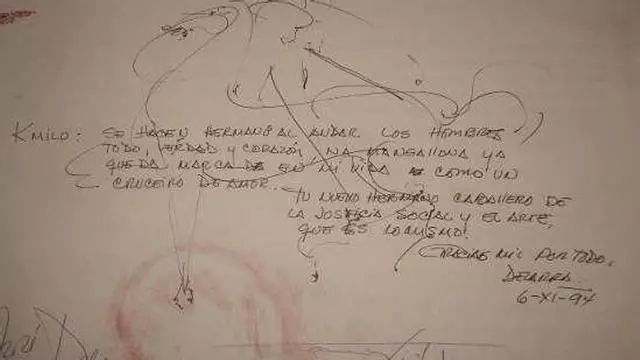 KMILO: SE HACEN HERMANOS AL ANDAR LOS HOMBRES
TODO, VERDAD Y CORAZÓN, YA
QUEDA MARCADE EN MI VIDA COMO UN
CRUCEIRO DE AMOR.
TU NUEVO HERMANO CABALLERO DE
LA JUSTICIA SOCIAL Y EL ARTE,
QUE ES LO MISMO!
GRACIAS MIL POR TODO,
DELARRA.
6-XI-94